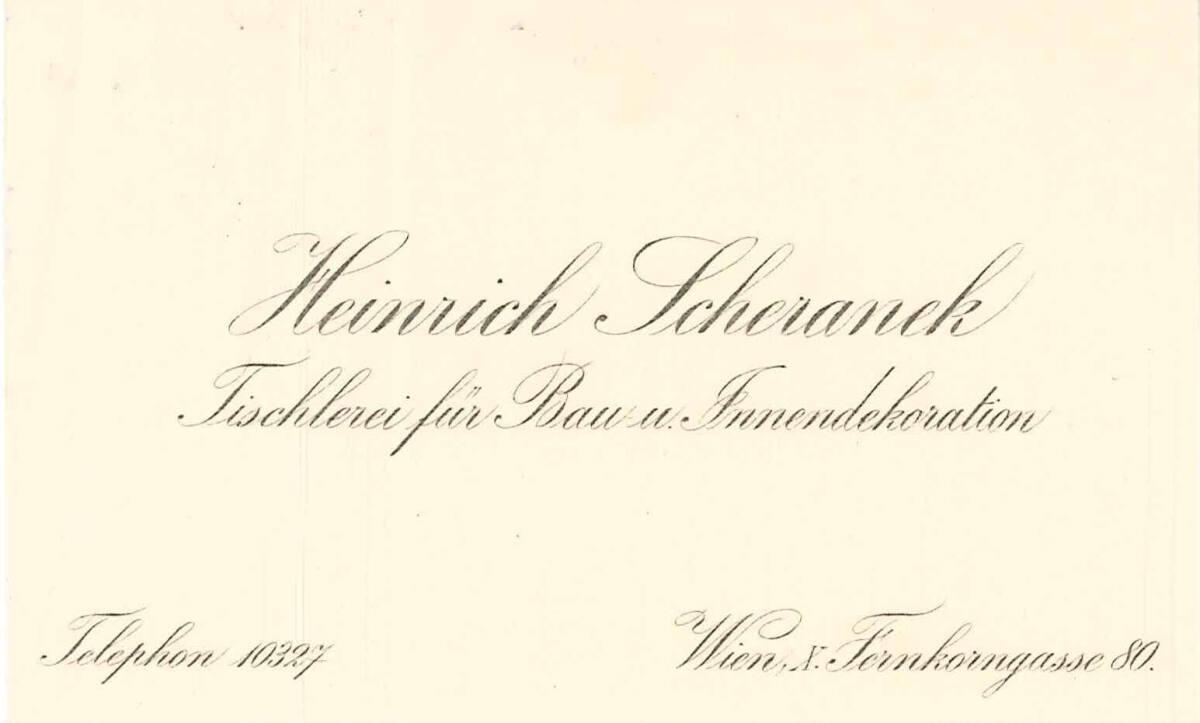 Heinrich Scheranek
Tischlerei für Bau- u. Innendekoration
Telephon 10327
Wien, X. Fernkorngasse 80.